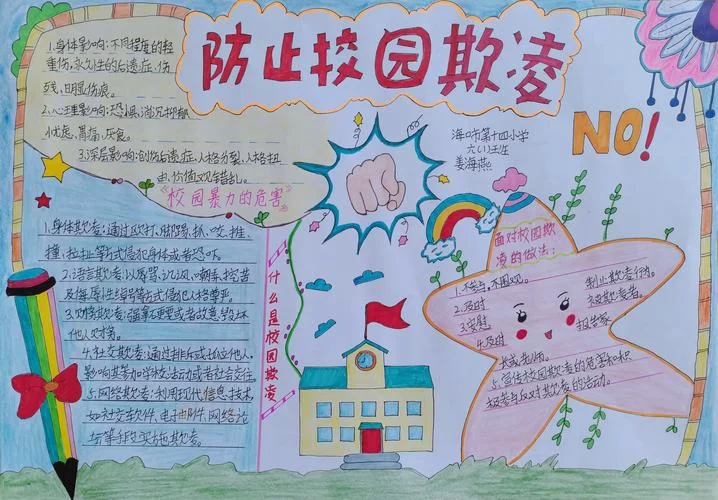 防止校园欺凌
1.身体影响:不同程度的轻
重伤,永久性的后遗症、伤
残、明显伤痕。
2.心理影响:恐惧、消沉抑郁
忧虑、胃痛、厌食。
3.深层影响:创伤后遗症、人格分裂、人格扭
曲、价值观错乱。
《校园暴力的危害》
海口市第十四小学
六(1)班
姜海燕
NO!
什么是校园欺凌
1.身体欺凌:通过殴打、脚踢、抓、咬、推、
撞、拉扯等方式侵犯身体或者恐吓。
2.语言欺凌:以辱骂、讥讽、嘲弄、挖苦
及侮辱性绰号等方式侵犯人格尊严。
3.财物欺凌:强拿硬要或者故意毁坏
他人财物。
4.社交欺凌:通过排斥或孤立他人,
影响其参加学校活动或者社会交往。
5.网络欺凌:利用现代信息技术
如社交软件、电子邮件、网络论
坛等手段实施欺凌。
面对校园欺
凌的做法:
1.不参与、不围观。
2.及时 制止欺凌行为。
3.安慰 被欺凌者。
4.及时 报告家
长或老师。
5.宣传校园欺凌的危害和积
极参与反对欺凌的活动。